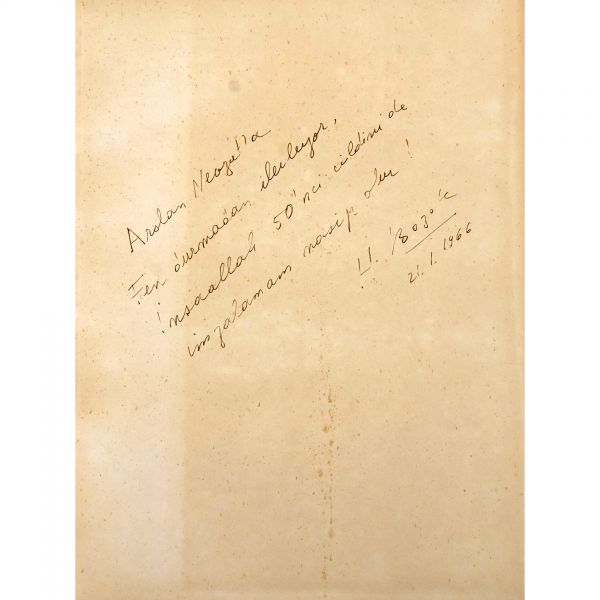 Arslan
Fen durmadan ilerleyor,
İnşaallah 50'nci cildini de
imzalamam nasip olur!
21.1.1966